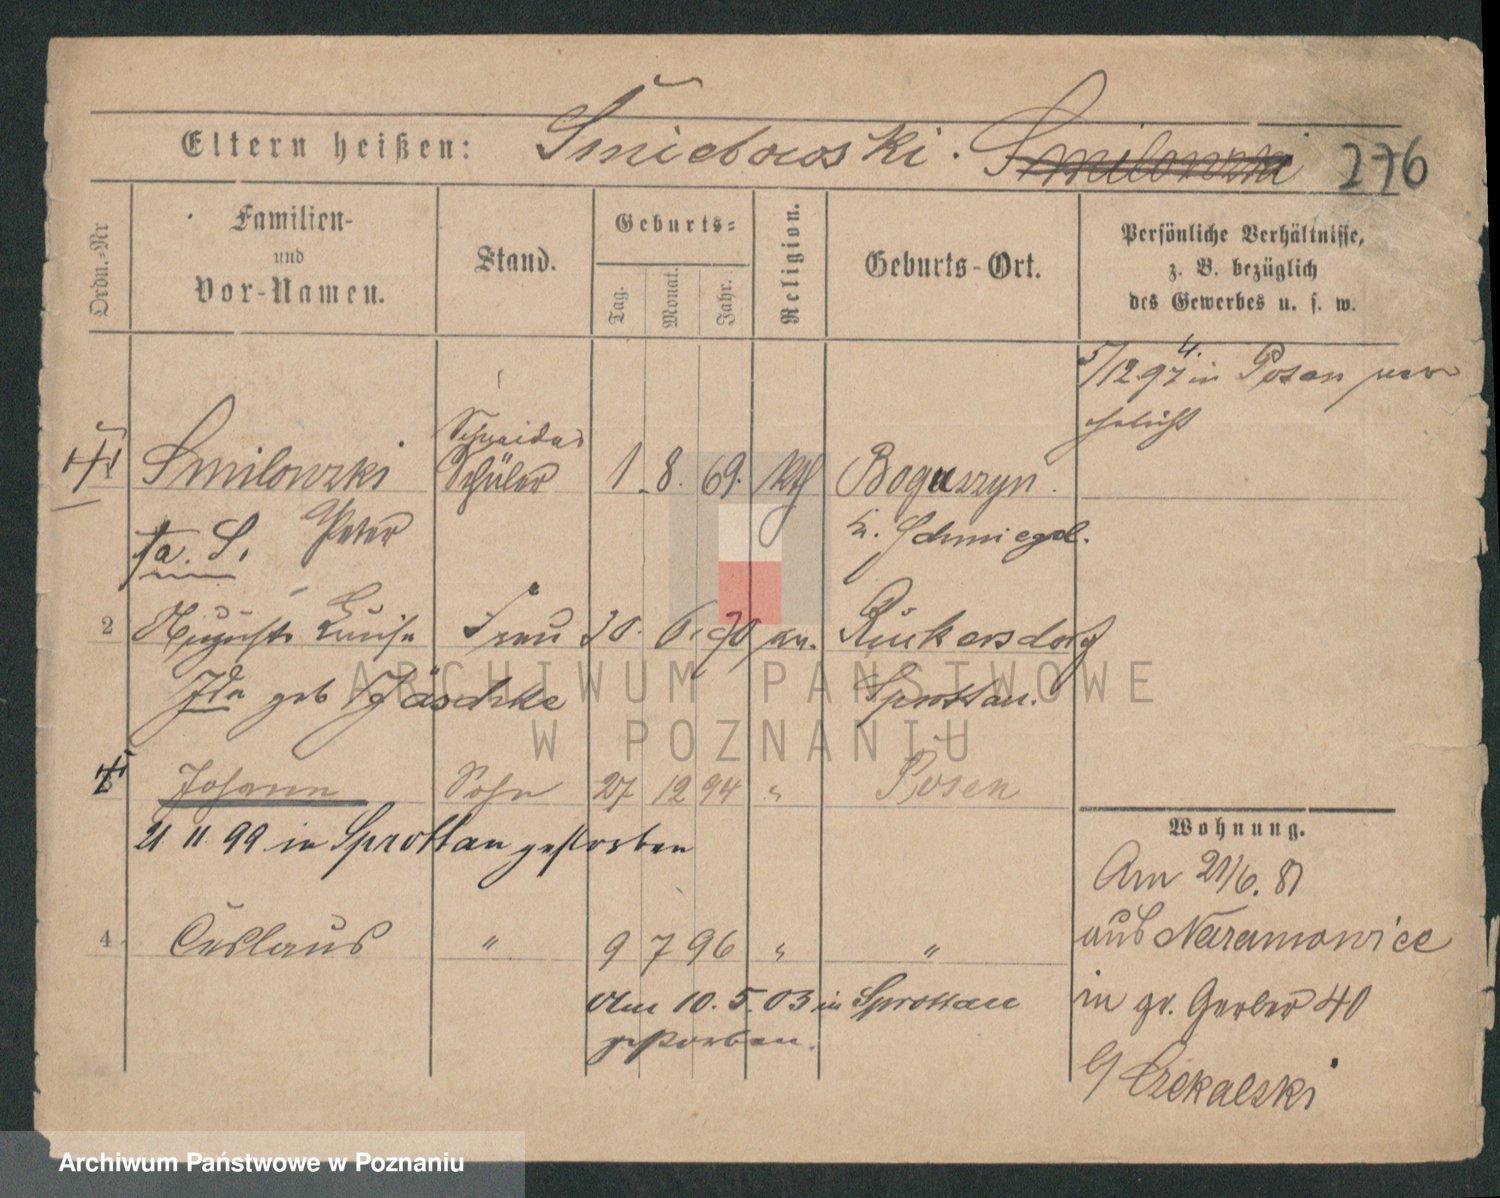 Eltern heißen: Śmiełowski. Smilowski 276
Ordn.-Nr
Familien-
und
Vor-Namen.
Stand.
Geburts-
Tag.
Monat.
Jahr.
Religion.
Geburts-Ort.
Persönliche Verhältnisse,
z. B. bezüglich
des Gewerbes u. s. w.
5/12.97 in Posen ver
ehelicht
Schneider
Smilowski Schüler 1. 8. 69. kth Boguszyn.
Peter Kr. Schmiegel.
2 Auguste Luise Frau 30. 6. 70 ev. Rückersdorf
Ida geb Jäschke Sprottau.
Johann Sohn 27 12 94 " Posen
21 11 99 in Sprottau gestorben
4 Ceslaus " 9 7 96 " "
Am 10. 5. 03 in Sprottau
gestorben.
Wohnung.
Am 21/6. 81
aus Naramowice
in gr. Gerber 40
b/ Czekalski
ARCHIWUM PAŃSTWOWE
W POZNANIU
Archiwum Państwowe w Poznaniu